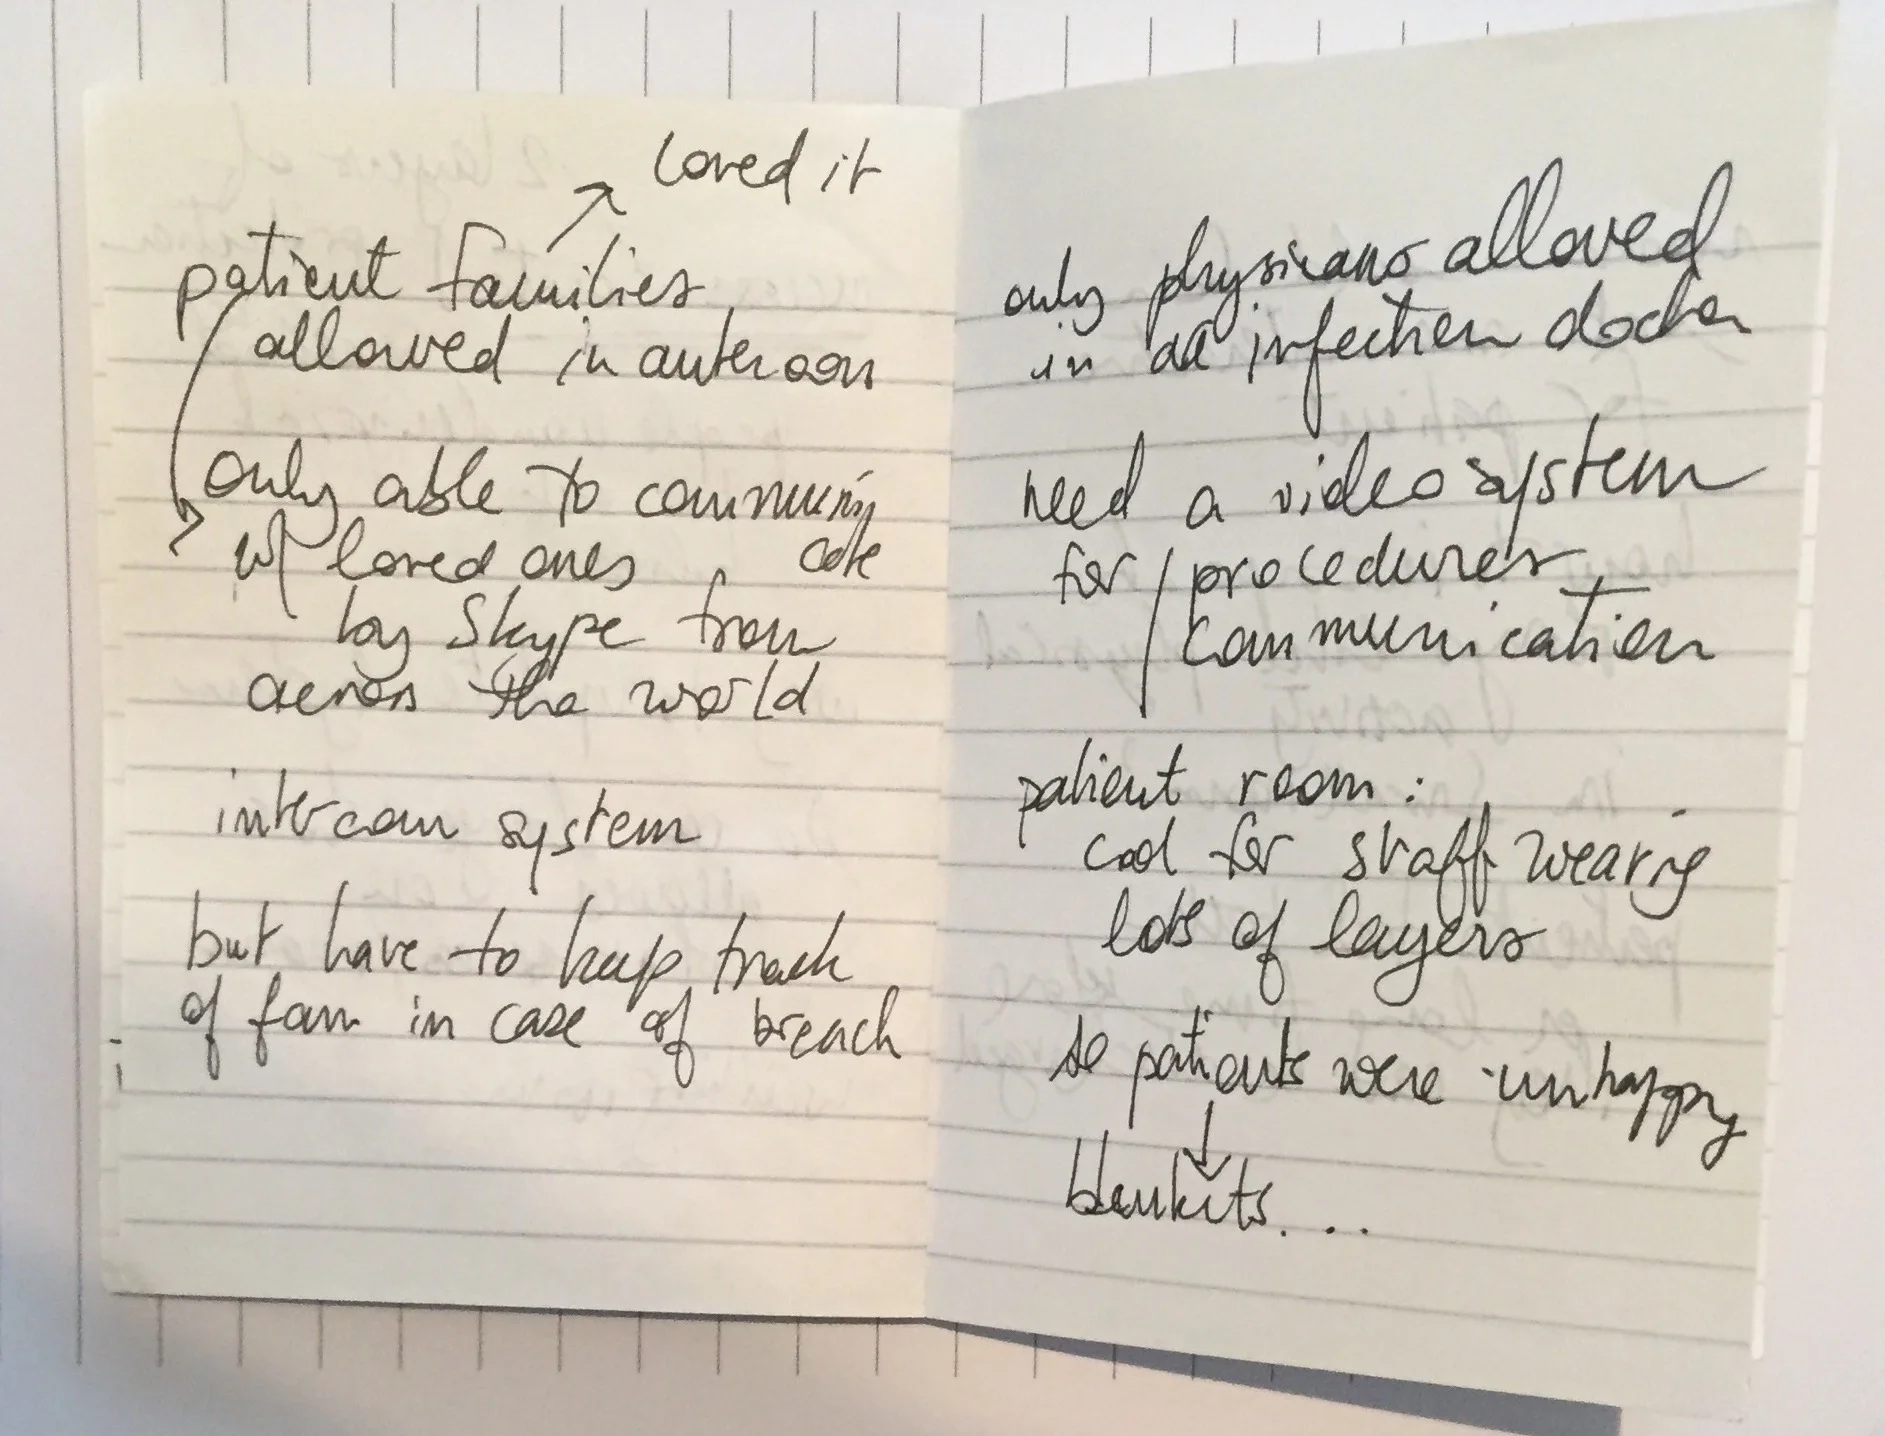 loved it
patient families
allowed in anteroom
only able to communi
w/ loved ones cate
by Skype from
across the world
intercom system
but have to keep track
of fam in case of breach
only physicians allowed
in infection doctor
need a video system
for / procedures
/ communication
patient room :
cool for staff wearing
lots of layers
so patients were unhappy
↓
blankets. . . .